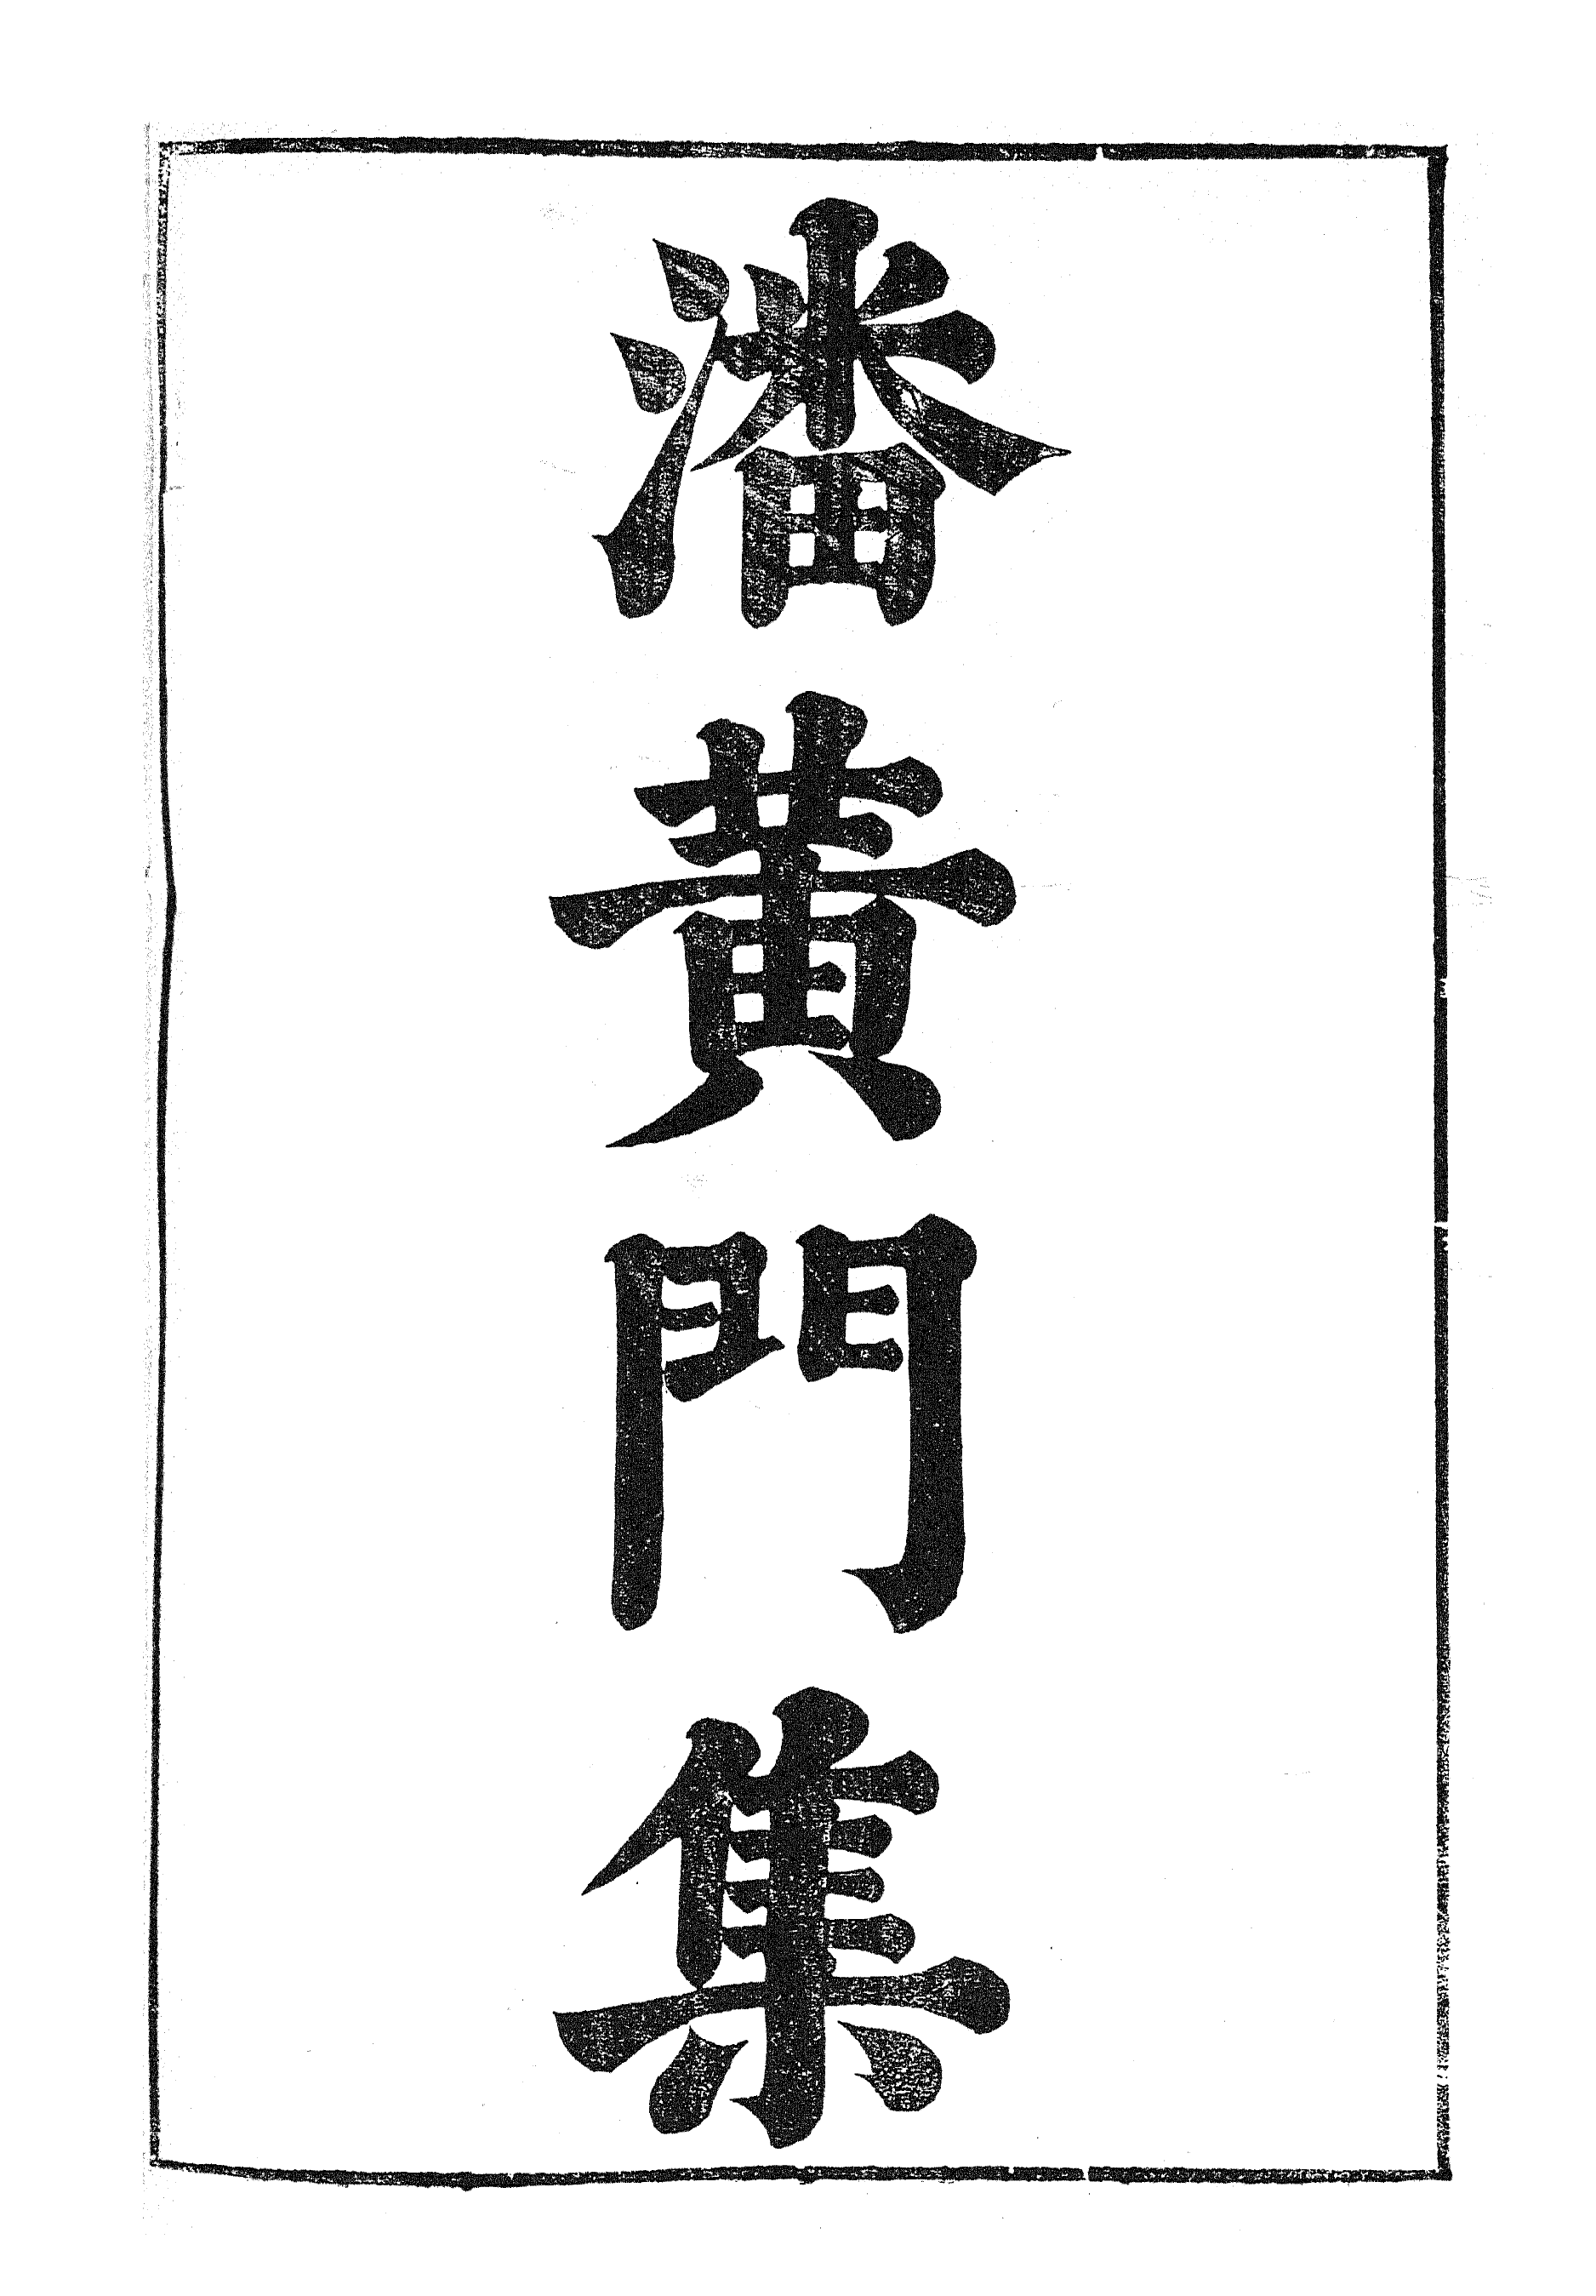 潘黃門集